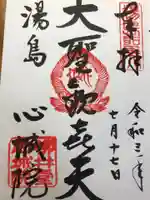 奉拝
令和三年
七月十七日
大聖歓喜天
湯島
心城院